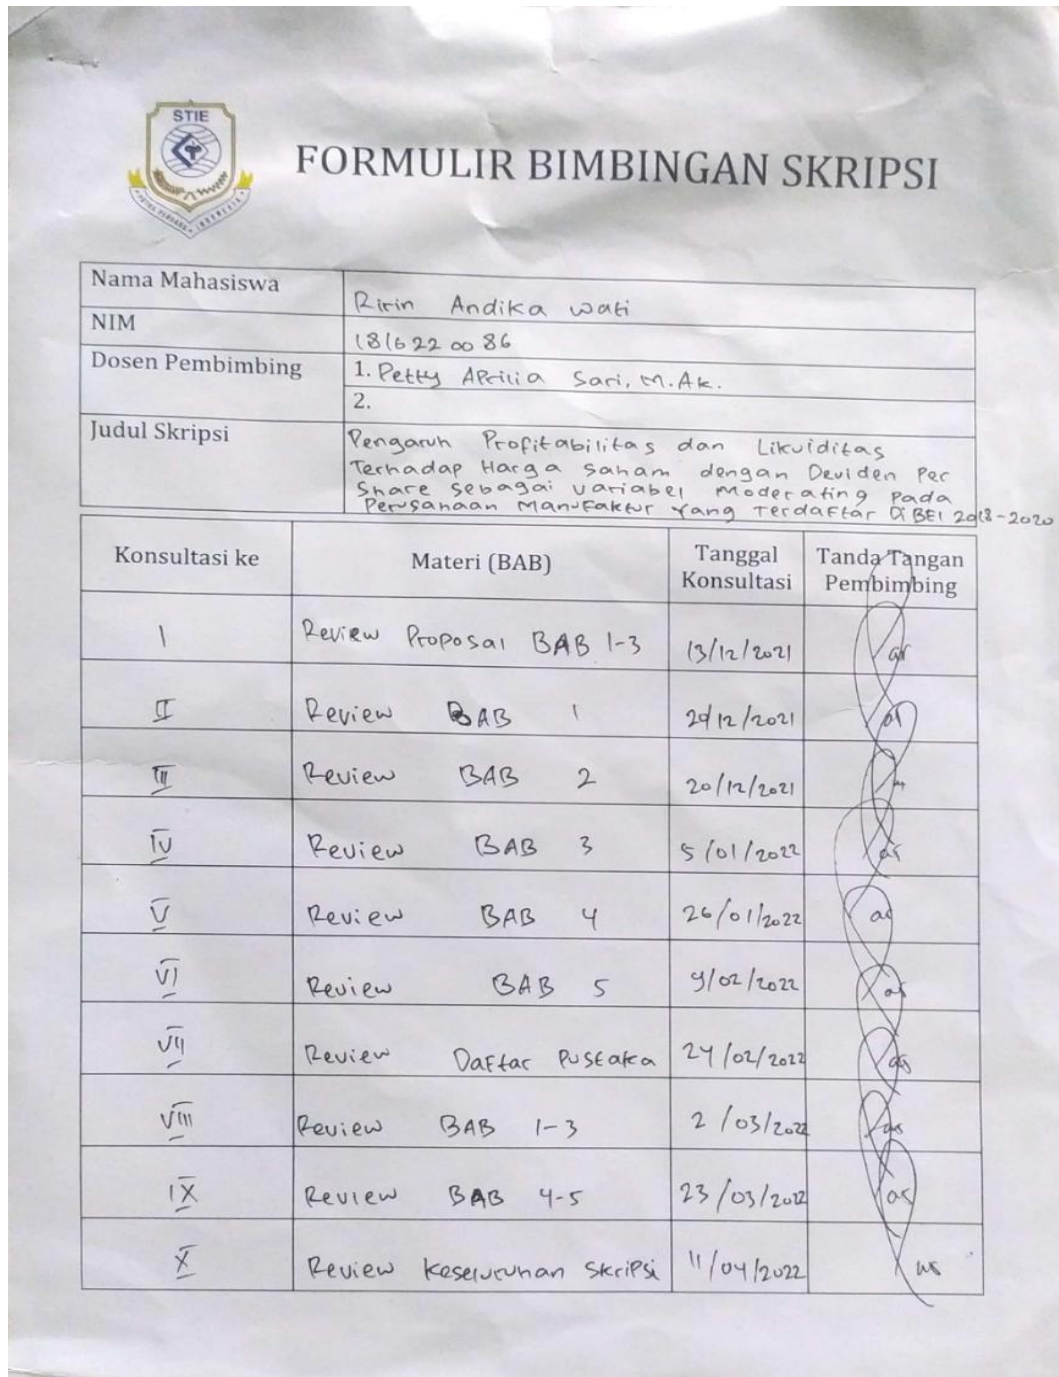 STIE
FORMULIR BIMBINGAN SKRIPSI
Nama Mahasiswa
Ririn Andika wati
NIM
1816220086
Dosen Pembimbing
1. Petty Aprilia Sari, M.Ak.
2.
Judul Skripsi
Pengaruh Profitabilitas dan Likuiditas
Terhadap Harga saham dengan Deviden Per
Share sebagai variabel Moderating pada
Perusahaan Manufaktur Yang Terdaftar Di BEI 2018-2020
Konsultasi ke Materi (BAB) Tanggal Konsultasi Tanda Tangan Pembimbing
I Review Proposal BAB 1-3 13/12/2021
II Review BAB 1 20/12/2021
III Review BAB 2 20/12/2021
IV Review BAB 3 5/01/2022
V Review BAB 4 26/01/2022
VI Review BAB 5 9/02/2022
VII Review Daftar Pustaka 24/02/2022
VIII Review BAB 1-3 2/03/2022
IX Review BAB 4-5 23/03/2022
X Review Keseluruhan Skripsi 11/04/2022